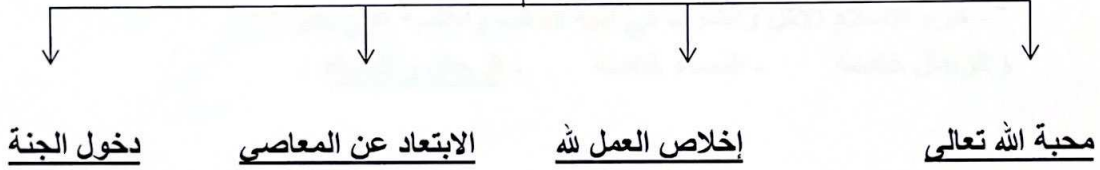 محبة الله تعالى
إخلاص العمل لله
الابتعاد عن المعاصي
دخول الجنة